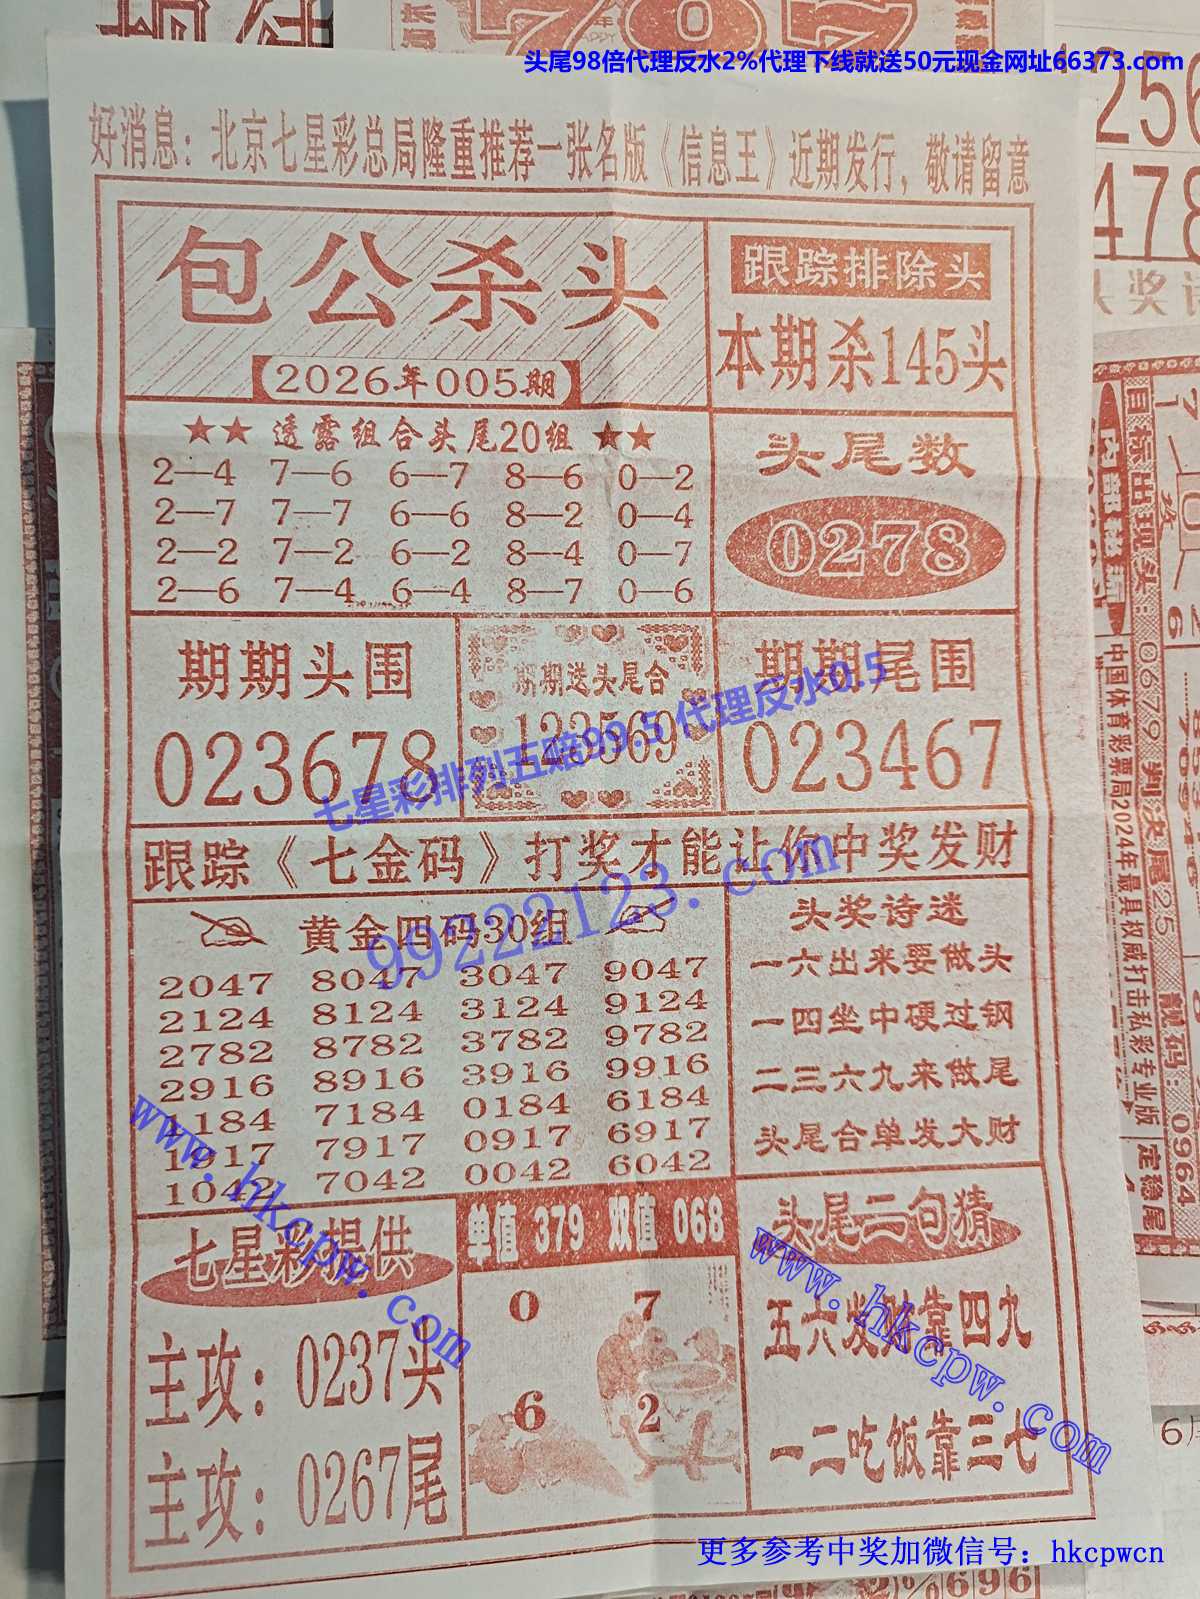 头尾98倍代理反水2%代理下线就送50元现金网址66373.com
好消息：北京七星彩总局隆重推荐一张名版《信息王》近期发行，敬请留意
包公杀头
2026年005期
跟踪排除头
本期杀145头
★★ 透露组合头尾20组 ★★
2—4 7—6 6—7 8—6 0—2
2—7 7—7 6—6 8—2 0—4
2—2 7—2 6—2 8—4 0—7
2—6 7—4 6—4 8—7 0—6
头尾数
0278
期期头围
023678
期期送头尾合
123569
期期尾围
023467
七星彩排列五赔99.5 代理反水0.5
跟踪《七金码》打奖才能让你中奖发财
99222123.com
黄金四码30组
2047 8047 3047 9047
2124 8124 3124 9124
2782 8782 3782 9782
2916 8916 3916 9916
1184 7184 0184 6184
1917 7917 0917 6917
1042 7042 0042 6042
头奖诗迷
一六出来要做头
一四坐中硬过钢
二三六九来做尾
头尾合单发大财
www.hkcpw.com
七星彩提供
主攻：0237头
主攻：0267尾
单值 379 双值 068
0 7
6 2
头尾二句猜
五六发财靠四九
一二吃饭靠三七
www.hkcpw.com
更多参考中奖加微信号：hkcpwcn
787
1256
478
目标出现头：8679 判决尾25 靓码：0964
内部彩票
中国体育彩票局2024年最具权威打击私彩专业版
定稳尾
696